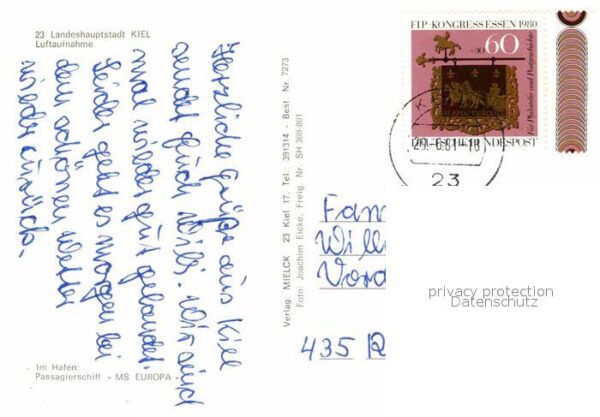 23 Landeshauptstadt KIEL
Luftaufnahme
Herzliche Grüße aus Kiel
sendet Euch Nils. Wir sind
mal wieder gut gelandet.
Leider geht es morgen bei
dem schönen Wetter
wieder zurück.
Im Hafen:
Passagierschiff - MS EUROPA -
Verlag: MIELCK 23 Kiel 17, Tel. 391314 - Best. Nr. 7273
Foto: Joachim Eicke, Freig. Nr. SH 369-801
FIP-KONGRESS ESSEN 1980
60
+30
Für Philatelie und Postgeschichte
DEUTSCHE BUNDESPOST
23
Fam
Will
Vord
435 R
privacy protection
Datenschutz